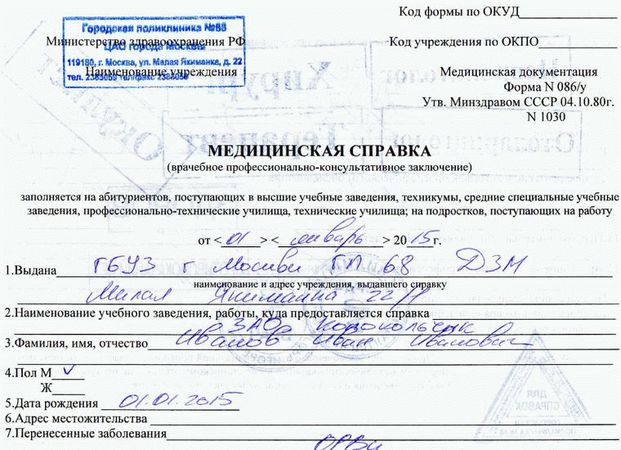 Код формы по ОКУД
Городская поликлиника №68
ЦАО города Москвы
119180, г. Москва, ул. Малая Якиманка, д. 22
Министерство здравоохранения РФ
Код учреждения по ОКПО
Наименование учреждения
Медицинская документация
Форма N 086/у
Утв. Минздравом СССР 04.10.80г.
N 1030
Хирург
Окулист
Терапевт
МЕДИЦИНСКАЯ СПРАВКА
(врачебное профессионально-консультативное заключение)
заполняется на абитуриентов, поступающих в высшие учебные заведения, техникумы, средние специальные учебные
заведения, профессионально-технические училища, технические училища; на подростков, поступающих на работу
от < 01 > < январь > 2015г.
1.Выдана ГБУЗ г Москвы ГП 68 ДЗМ
наименование и адрес учреждения, выдавшего справку
Малая Якиманка 22
2.Наименование учебного заведения, работы, куда предоставляется справка
ЗАО Колокольчик
3.Фамилия, имя, отчество Иванов Иван Иванович
4.Пол М V
Ж
5.Дата рождения 01.01.2015
6.Адрес местожительства
7.Перенесенные заболевания
ОРВИ
ДЛЯ
СПРАВОК